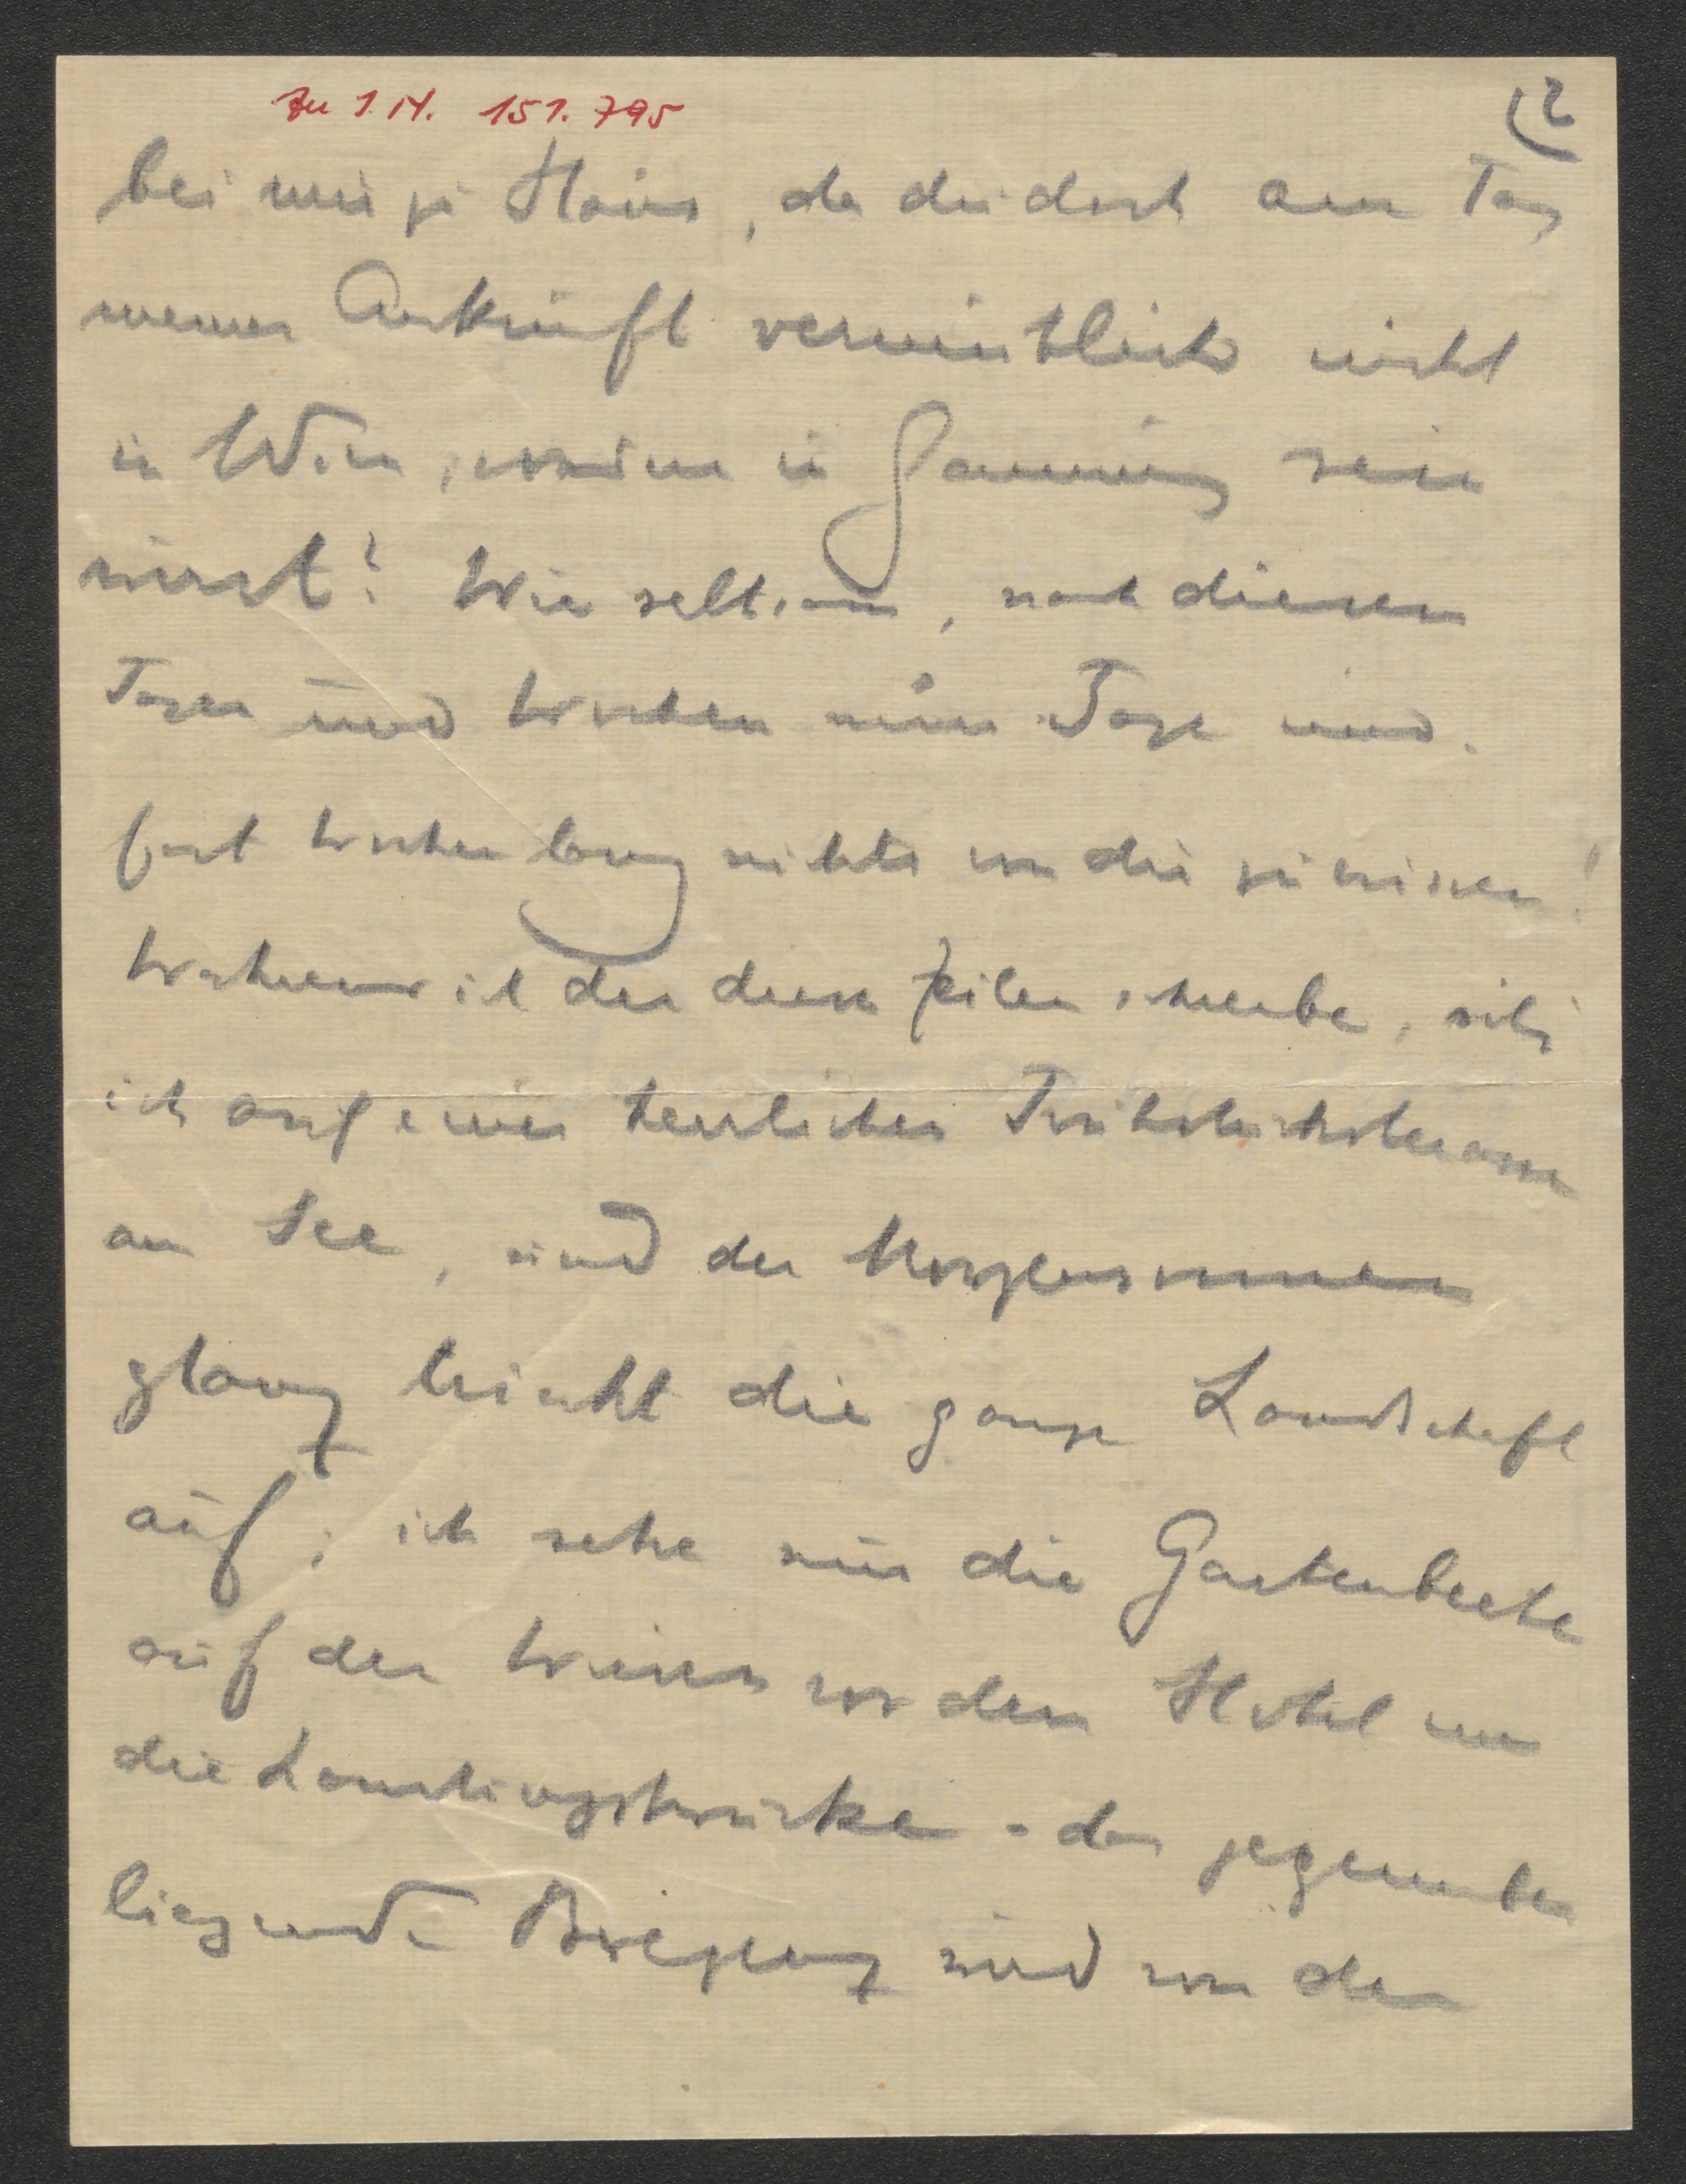 Zu I.N. 151.795
2)
bei mir zu Haus, da du doch am Tag
meiner Ankunft vermuthlich nicht
in Wien, sondern in Gaming sein
wirst? Wie seltsam, nach diesen
Tagen und Wochen nun Tage und
fast Wochen lang nichts von dir zu wissen!
Während ich dir diese Zeilen schreibe, sitz
ich auf einer herrlichen Frühstücksterrasse
am See, und der Morgensonnen
glanz leuchtet die ganze Landschaft
auf; ich sehe nur die Gartenbeete
auf der Wiese vor dem Hotel u
die Landungsbrücke – der gegenüber
liegende Bergzug sind von den